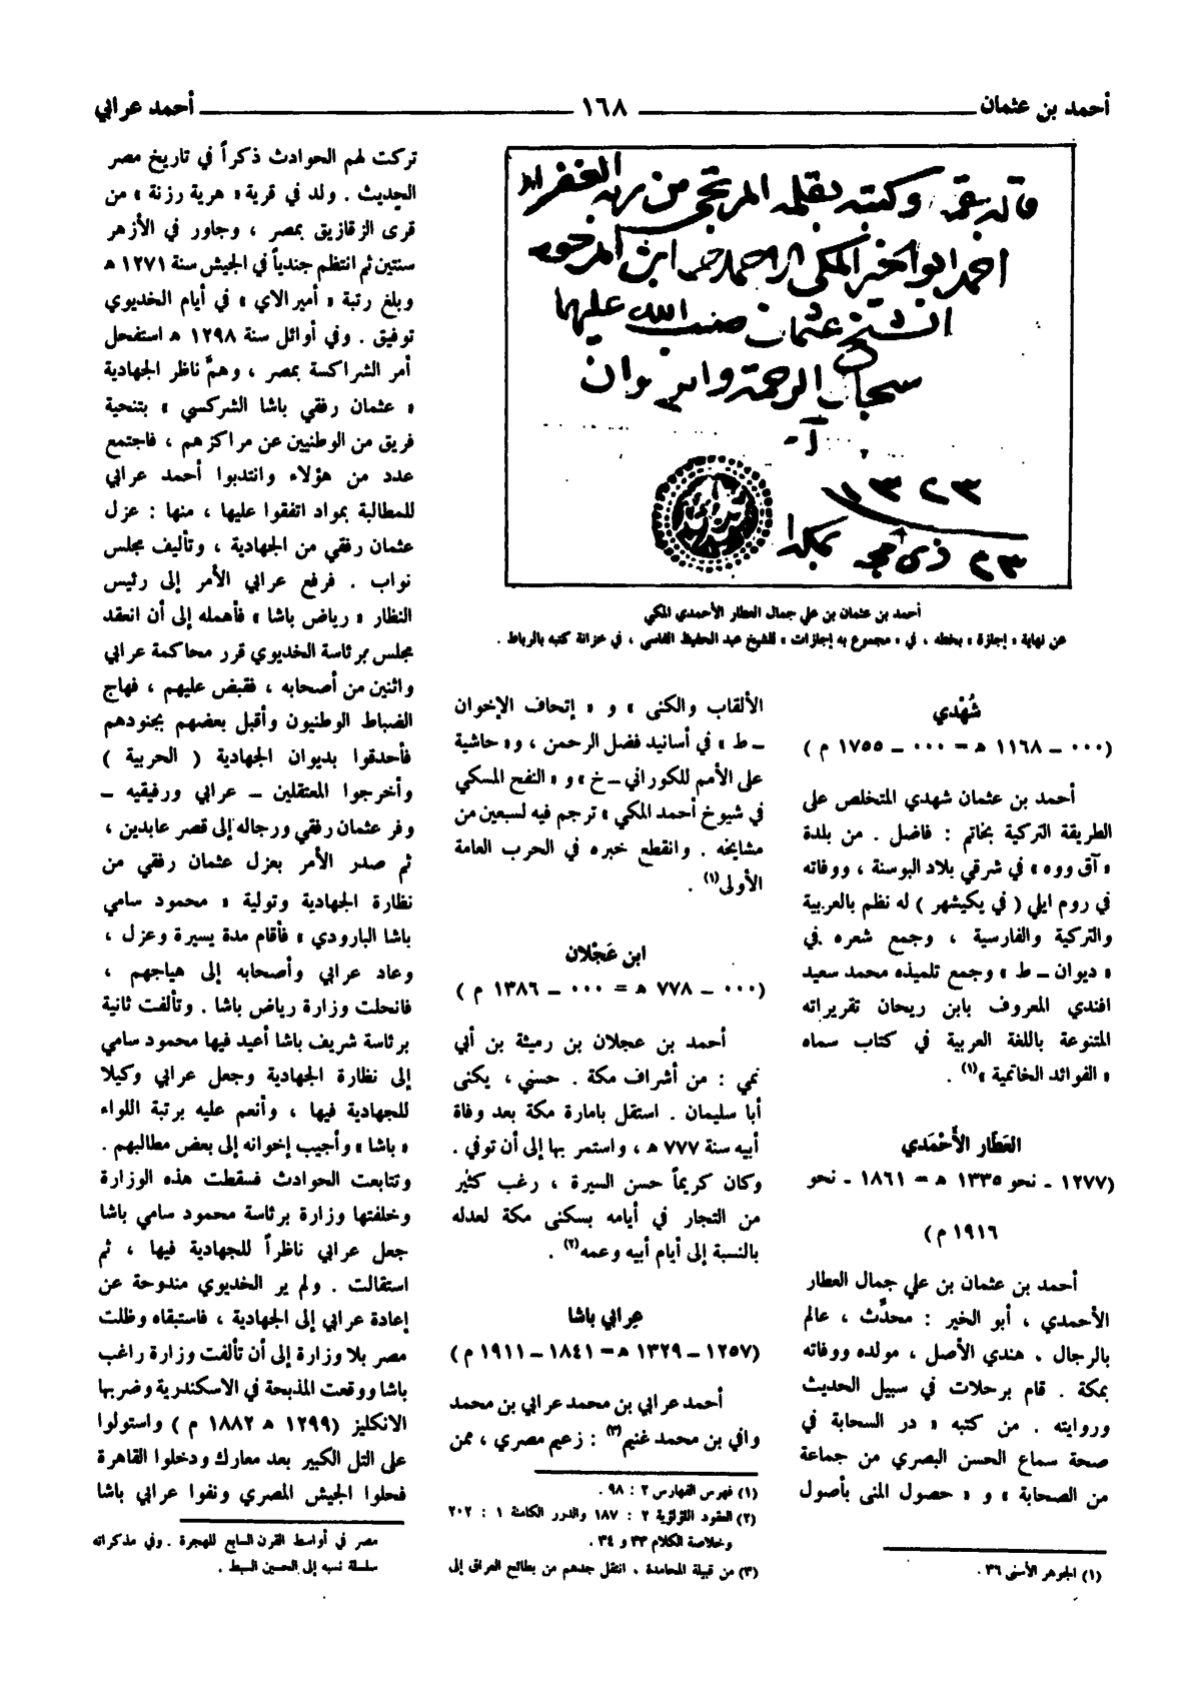 أحمد بن عثمان
١٦٨
أحمد عرابي
وكتبه بقلمه المرتجي من ربه الغفر
احمد ابو الخير المكي الاحمدي ابن المرحوم
الشيخ عثمان صب الله عليهما
سجال الرحمة والرضوان
آمين
١٣٢٣
٢٣ ذي حجة بمكة
أحمد بن عثمان بن علي جمال العطار الأحمدي المكي
عن نهاية « إجازة » بخطه ، في « مجموع به إجازات » للشيخ عبد الحفيظ الفاسي ، في خزانة كتبه بالرباط .
شُهْدي
(٠٠٠ – ١١٦٨ هـ = ٠٠٠ – ١٧٥٥ م )
أحمد بن عثمان شهدي المتخلص على
الطريقة التركية بخاتم : فاضل . من بلدة
« آق ووه » في شرقي بلاد البوسنة ، ووفاته
في روم ايلي ( في يكيشهر ) له نظم بالعربية
والتركية والفارسية ، وجمع شعره في
« ديوان – ط » وجمع تلميذه محمد سعيد
افندي المعروف بابن ريحان تقريراته
المتنوعة باللغة العربية في كتاب سماه
« الفوائد الخاتمية »(١) .
العَطّار الأَحْمَدي
(١٢٧٧ - نحو ١٣٣٥ هـ = ١٨٦١ - نحو
١٩١٦ م)
أحمد بن عثمان بن علي جمال العطار
الأحمدي ، أبو الخير : محدِّث ، عالم
بالرجال . هندي الأصل ، مولده ووفاته
بمكة . قام برحلات في سبيل الحديث
وروايته . من كتبه « در السحابة في
صحة سماع الحسن البصري من جماعة
من الصحابة » و « حصول المنى بأصول
(١) الجوهر الأسنى ٣٦ .
الألقاب والكنى » و « إتحاف الإخوان
– ط » في أسانيد فضل الرحمن ، و« حاشية
على الأمم للكوراني – خ » و « النفح المسكي
في شيوخ أحمد المكي » ترجم فيه لسبعين من
مشايخه . وانقطع خبره في الحرب العامة
الأولى(١) .
ابن عَجْلان
(٠٠٠ – ٧٧٨ هـ = ٠٠٠ – ١٣٨٦ م )
أحمد بن عجلان بن رميثة بن أبي
نمي : من أشراف مكة . حسني ، يكنى
أبا سليمان . استقل بامارة مكة بعد وفاة
أبيه سنة ٧٧٧ هـ ، واستمر بها إلى أن توفي .
وكان كريماً حسن السيرة ، رغب كثير
من التجار في أيامه بسكنى مكة لعدله
بالنسبة إلى أيام أبيه وعمه(٢) .
عرابي باشا
(١٢٥٧ – ١٣٢٩ هـ = ١٨٤١ – ١٩١١ م )
أحمد عرابي بن محمد عرابي بن محمد
وافي بن محمد غنيم(٣) : زعيم مصري ، ممن
(١) فهرس الفهارس ٢ : ٩٨ .
(٢) العقود اللؤلؤية ٢ : ١٨٧ والدرر الكامنة ١ : ٢٠٢
وخلاصة الكلام ٣٣ و ٣٤ .
(٣) من قبيلة المحامدة ، انتقل جدهم من بطائح العراق إلى
تركت لهم الحوادث ذكراً في تاريخ مصر
الحديث . ولد في قرية « هرية رزنة » من
قرى الزقازيق بمصر ، وجاور في الأزهر
سنتين ثم انتظم جندياً في الجيش سنة ١٢٧١ هـ
وبلغ رتبة « أمير الاي » في أيام الخديوي
توفيق . وفي أوائل سنة ١٢٩٨ هـ استفحل
أمر الشراكسة بمصر ، وهمَّ ناظر الجهادية
« عثمان رفقي باشا الشركسي » بتنحية
فريق من الوطنيين عن مراكزهم ، فاجتمع
عدد من هؤلاء وانتدبوا أحمد عرابي
للمطالبة بمواد اتفقوا عليها ، منها : عزل
عثمان رفقي من الجهادية ، وتأليف مجلس
نواب . فرفع عرابي الأمر إلى رئيس
النظار « رياض باشا » فأهمله إلى أن انعقد
مجلس برئاسة الخديوي قرر محاكمة عرابي
واثنين من أصحابه ، فقبض عليهم ، فهاج
الضباط الوطنيون وأقبل بعضهم بجنودهم
فأحدقوا بديوان الجهادية ( الحربية )
وأخرجوا المعتقلين – عرابي ورفيقيه –
وفر عثمان رفقي ورجاله إلى قصر عابدين ،
ثم صدر الأمر بعزل عثمان رفقي من
نظارة الجهادية وتولية « محمود سامي
باشا البارودي » فأقام مدة يسيرة وعزل ،
وعاد عرابي وأصحابه إلى هياجهم ،
فانحلت وزارة رياض باشا . وتألفت ثانية
برئاسة شريف باشا أعيد فيها محمود سامي
إلى نظارة الجهادية وجعل عرابي وكيلا
للجهادية فيها ، وأنعم عليه برتبة اللواء
« باشا » وأجيب إخوانه إلى بعض مطالبهم .
وتتابعت الحوادث فسقطت هذه الوزارة
وخلفتها وزارة برئاسة محمود سامي باشا
جعل عرابي ناظراً للجهادية فيها ، ثم
استقالت . ولم ير الخديوي مندوحة عن
إعادة عرابي إلى الجهادية ، فاستبقاه وظلت
مصر بلا وزارة إلى أن تألفت وزارة راغب
باشا ووقعت المذبحة في الاسكندرية وضربها
الانكليز (١٢٩٩ هـ ١٨٨٢ م ) واستولوا
على التل الكبير بعد معارك ودخلوا القاهرة
فحلوا الجيش المصري ونفوا عرابي باشا
مصر في أواسط القرن السابع للهجرة . وفي مذكراته
سلسلة نسبه إلى الحسين السبط .